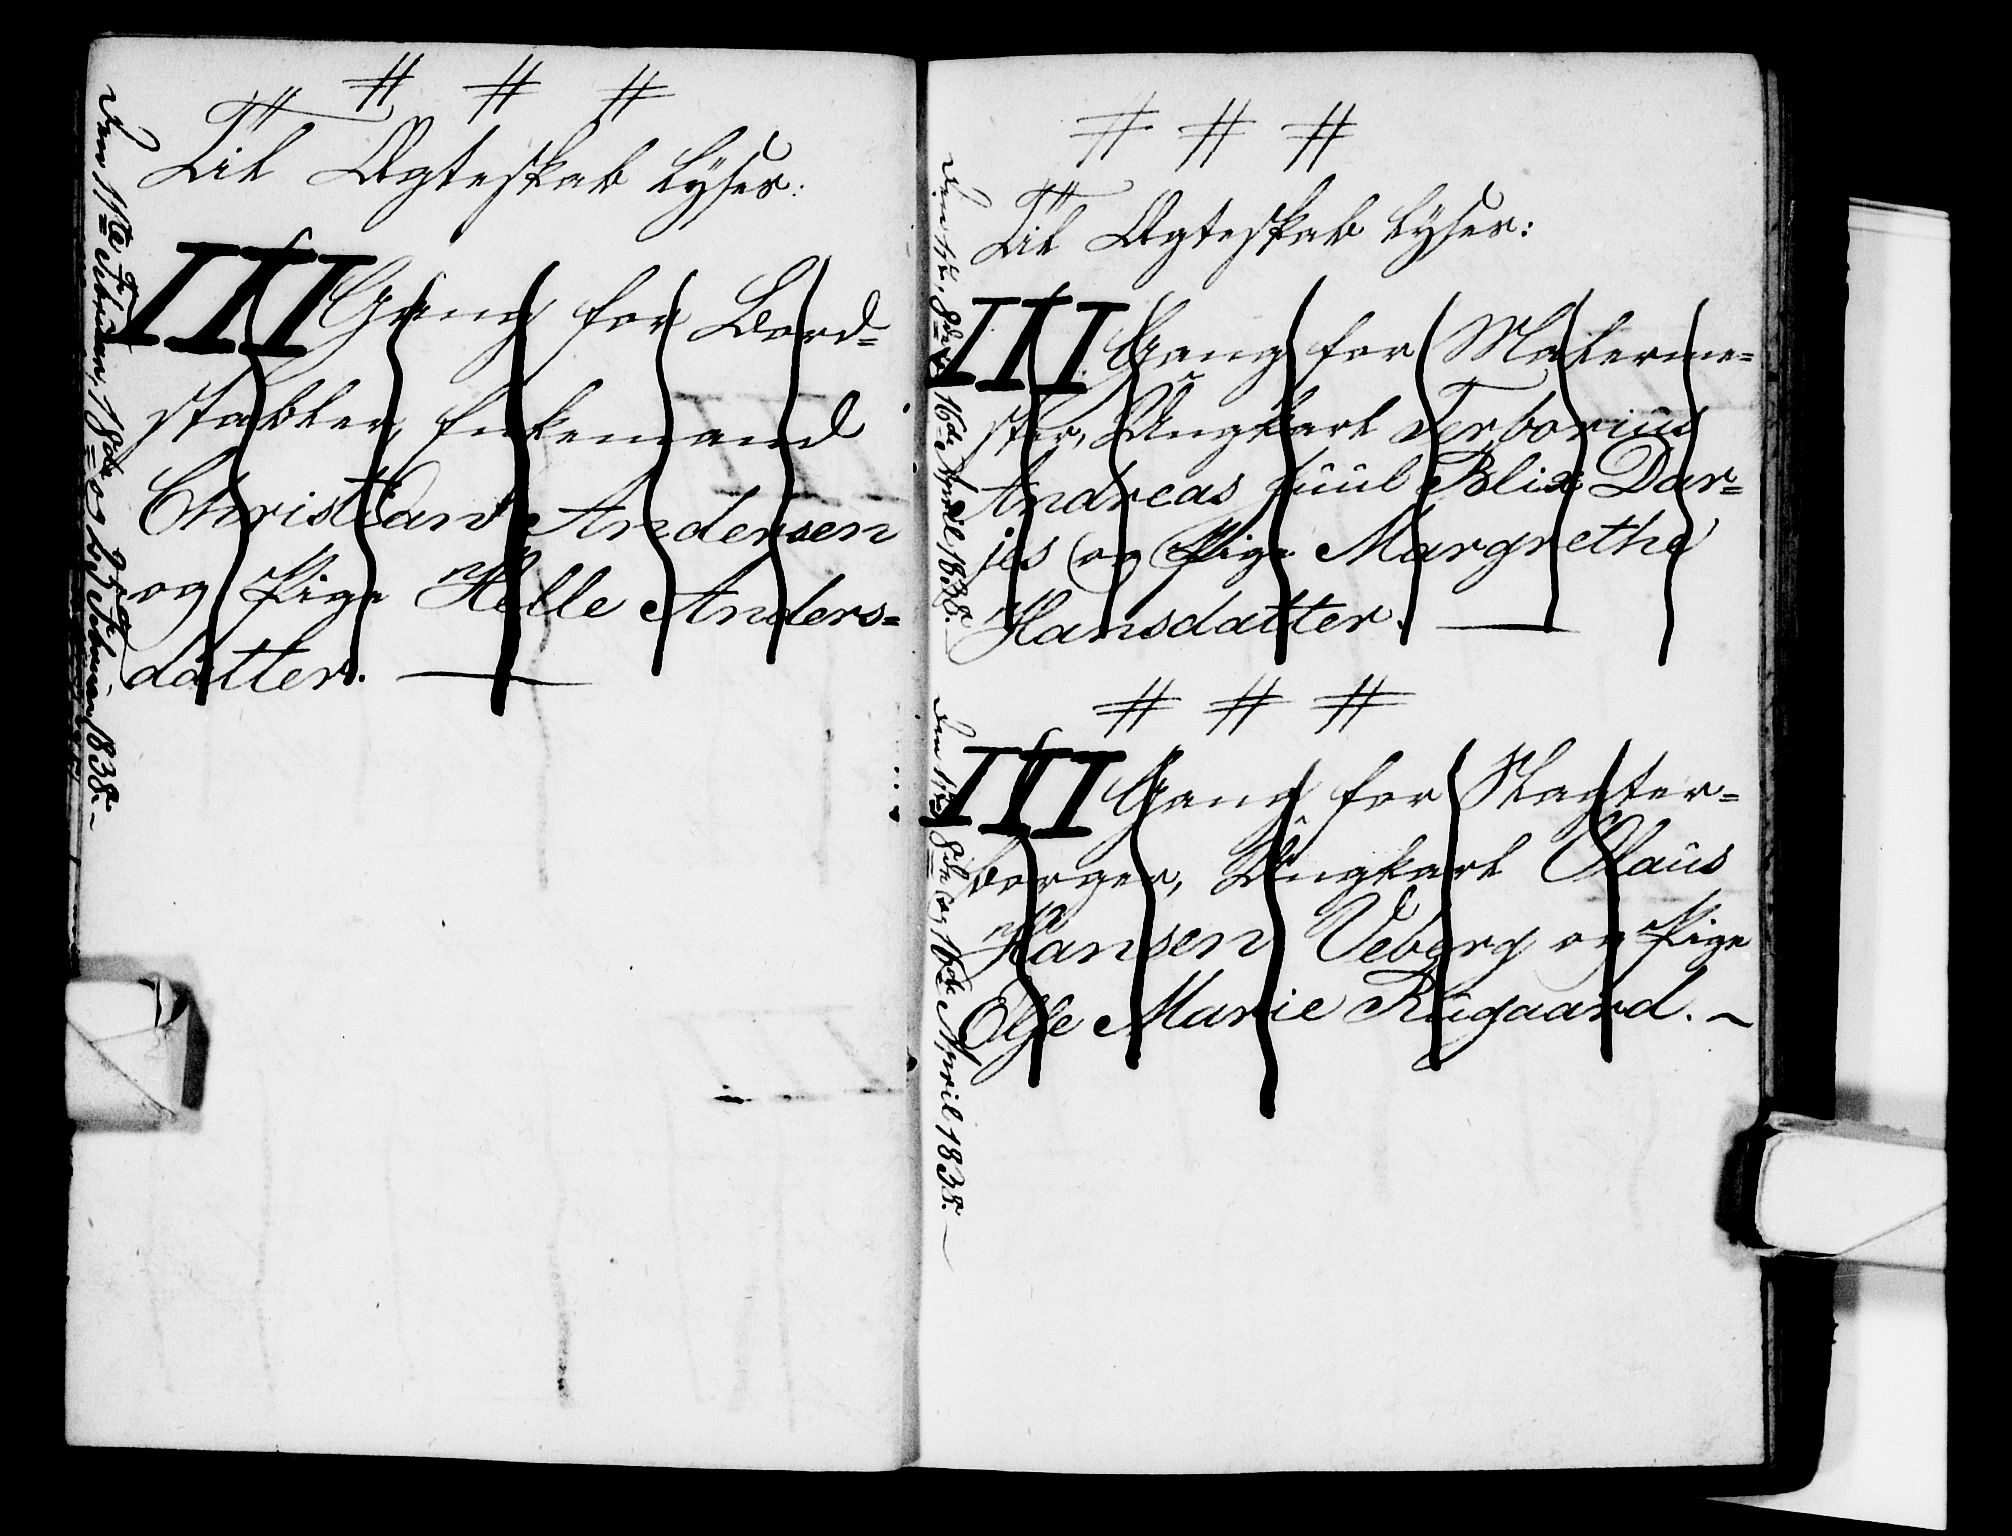 # # #
Til Ægteskab lyses:
III Gang for Bord=
stabler, Enkemand
Christian Andersen
og Pige Helle Anders=
datter. —
Den 11te Februar, 18de og 25de Februar 1838.
# # #
Til Ægteskab lyses:
III Gang for Malerme=
ster, Ungkarl Terborius
Andreas Juul Blix Dar=
jes og Pige Margrethe
Hansdatter. —
Den 1te, 8de og 16de April 1838.
# # #
III Gang for Slagter=
borger, Ungkarl Olaus
Hansen Veberg og Pige
Else Marie Rugaard. —
Den 1te, 8de og 16de April 1838. —